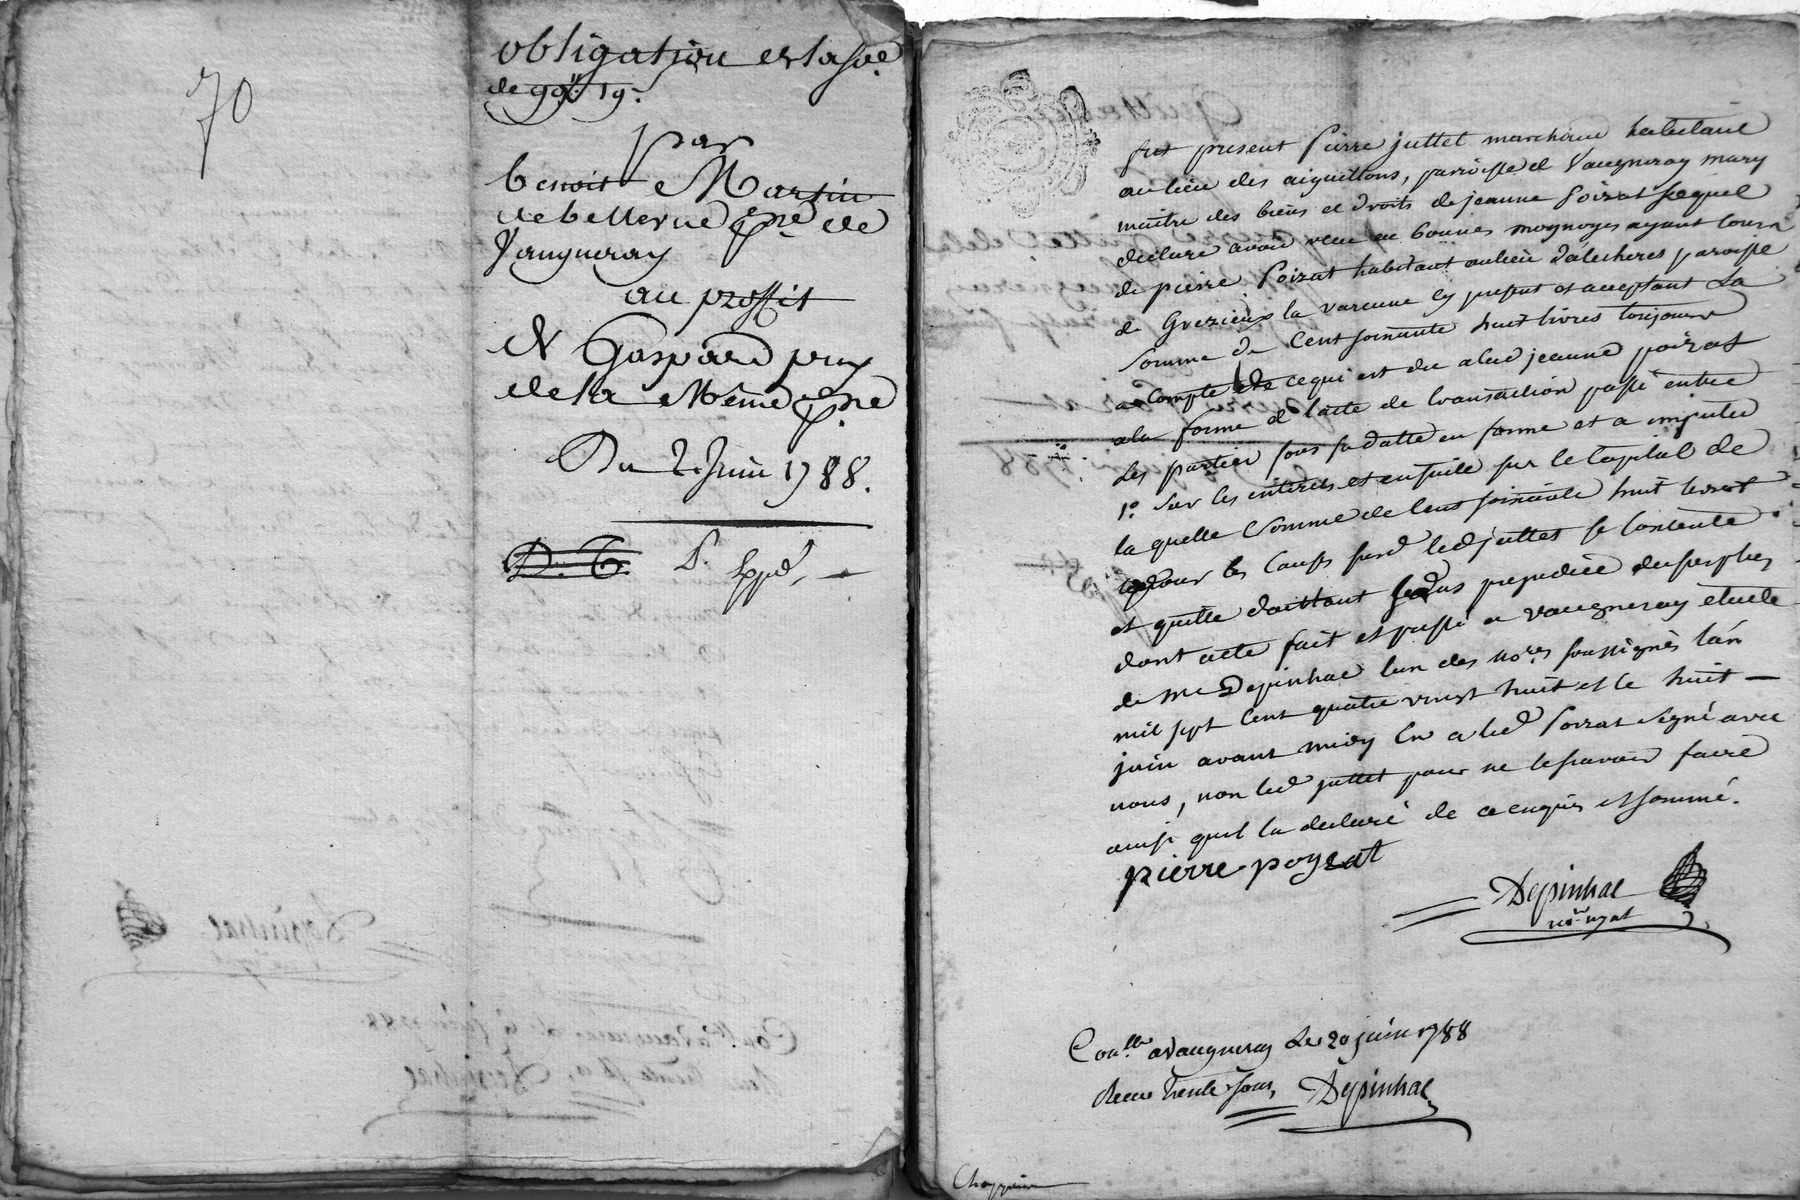 70
obligation et
de 99# 19s
par
benoit Martin
de bellevue psse de
Vaugneray
au proffit
de Gaspard
de la Même psse
Du 2. Juin 1788.
fut present Pierre juttet marchand habitant
au lieu des aiguillons, paroisse de Vaugneray mary
maitre des biens et droits de jeanne Poizat lequel
declare avoir recu en bonnes monoyes ayant cours
de pierre Poizat habitant au lieu paroisse
de Grezieux la varenne cy present et acceptant La
Somme de Cent soixante huit livres toujours
a Compte de ce qui est du a lad jeanne poizat
a la forme de l'acte de transaction passé entre
les parties sous sa datte en forme et a imputer
1.° sur les interets et ensuite sur le Capital de
la quelle Somme de Cent soixante huit livres
pour les causes susd led juttet se Contente
et quitte d'aittant sans prejudice du surplus
dont acte fait et passé a vaugneray etude
de Me Depinhac l'un des nores soussignés l'an
mil sept Cent quatre vingt huit et le huit —
juin avant midy En a led Poizat signé avec
nous, non led juttet pour ne le sçavoir faire
ainsi qu'il l'a declaré de ce enquis et sommé.
pierre poyzat
Depinhac
nore royal
Conllé a Vaugneray Le 20 juin 1788
Recu trente sous, Depinhac